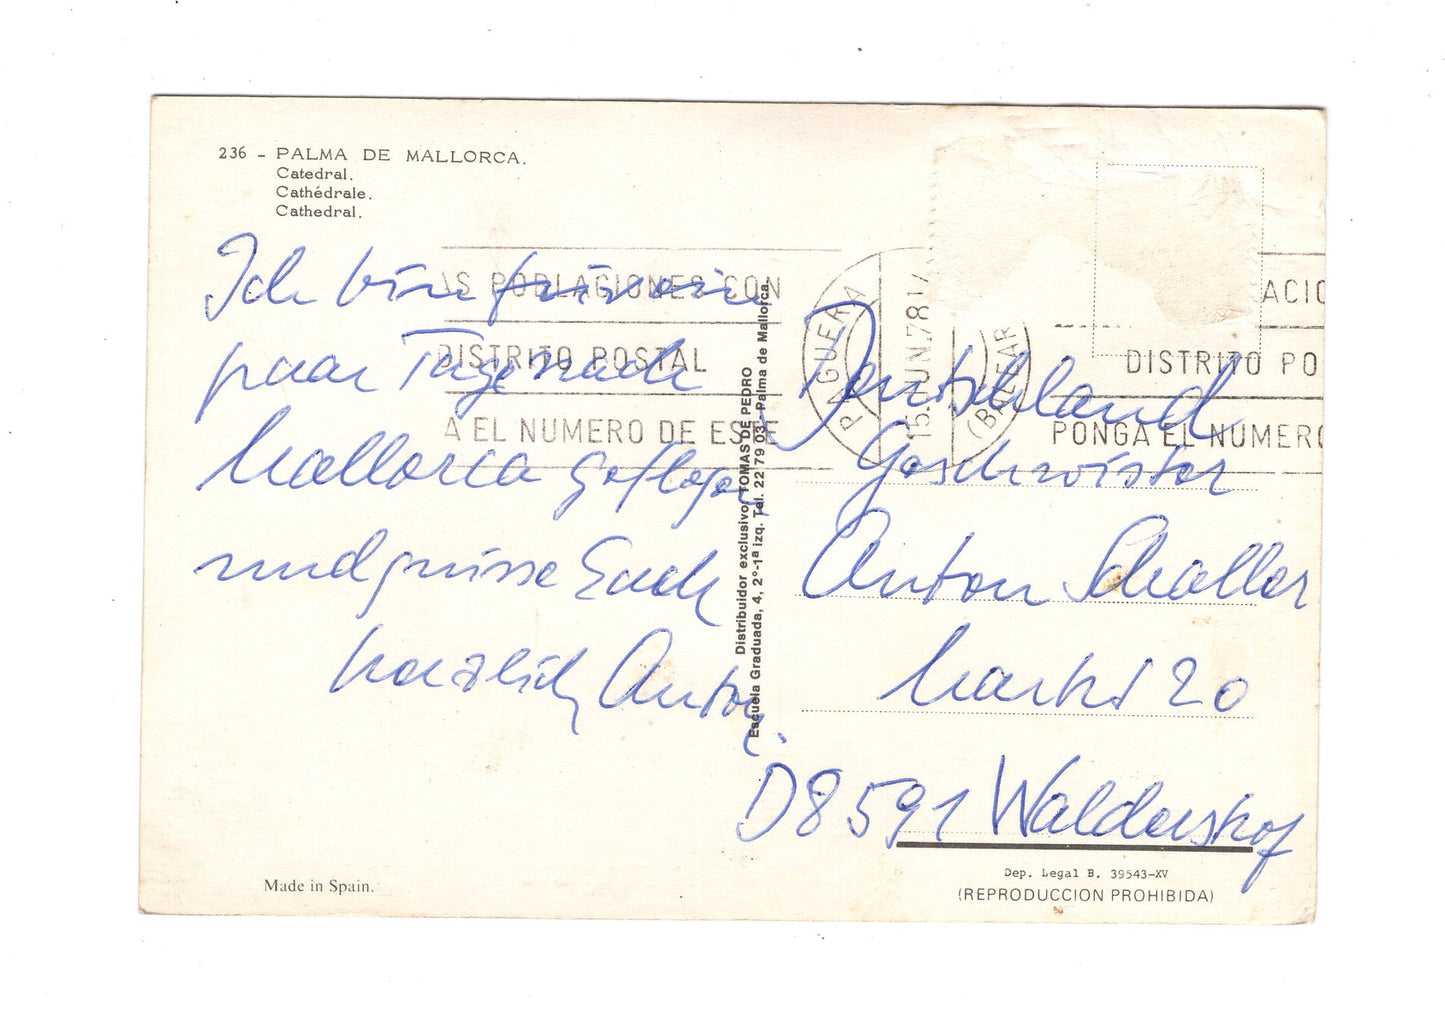 236 - PALMA DE MALLORCA.
Catedral.
Cathédrale.
Cathedral.
AS POBLACIONES CON
DISTRITO POSTAL
A EL NUMERO DE ESTE
PAGUERA
15.JUN.78
(BALEAR
ACIO
DISTRITO PO
PONGA EL NUMERO
Ich bin für ein
paar Tage nach
Mallorca geflogen
und grüsse Euch
herzlich Anton.
Distribuidor exclusivo, TOMAS DE PEDRO
Escuela Graduada, 4, 2º-1ª izq. Tel. 22 79 03 - Palma de Mallorca.
Deutschland
Geschwister
Anton Schaller
Markt 20
D8591 Waldershof
Made in Spain.
Dep. Legal B. 39543-XV
(REPRODUCCION PROHIBIDA)